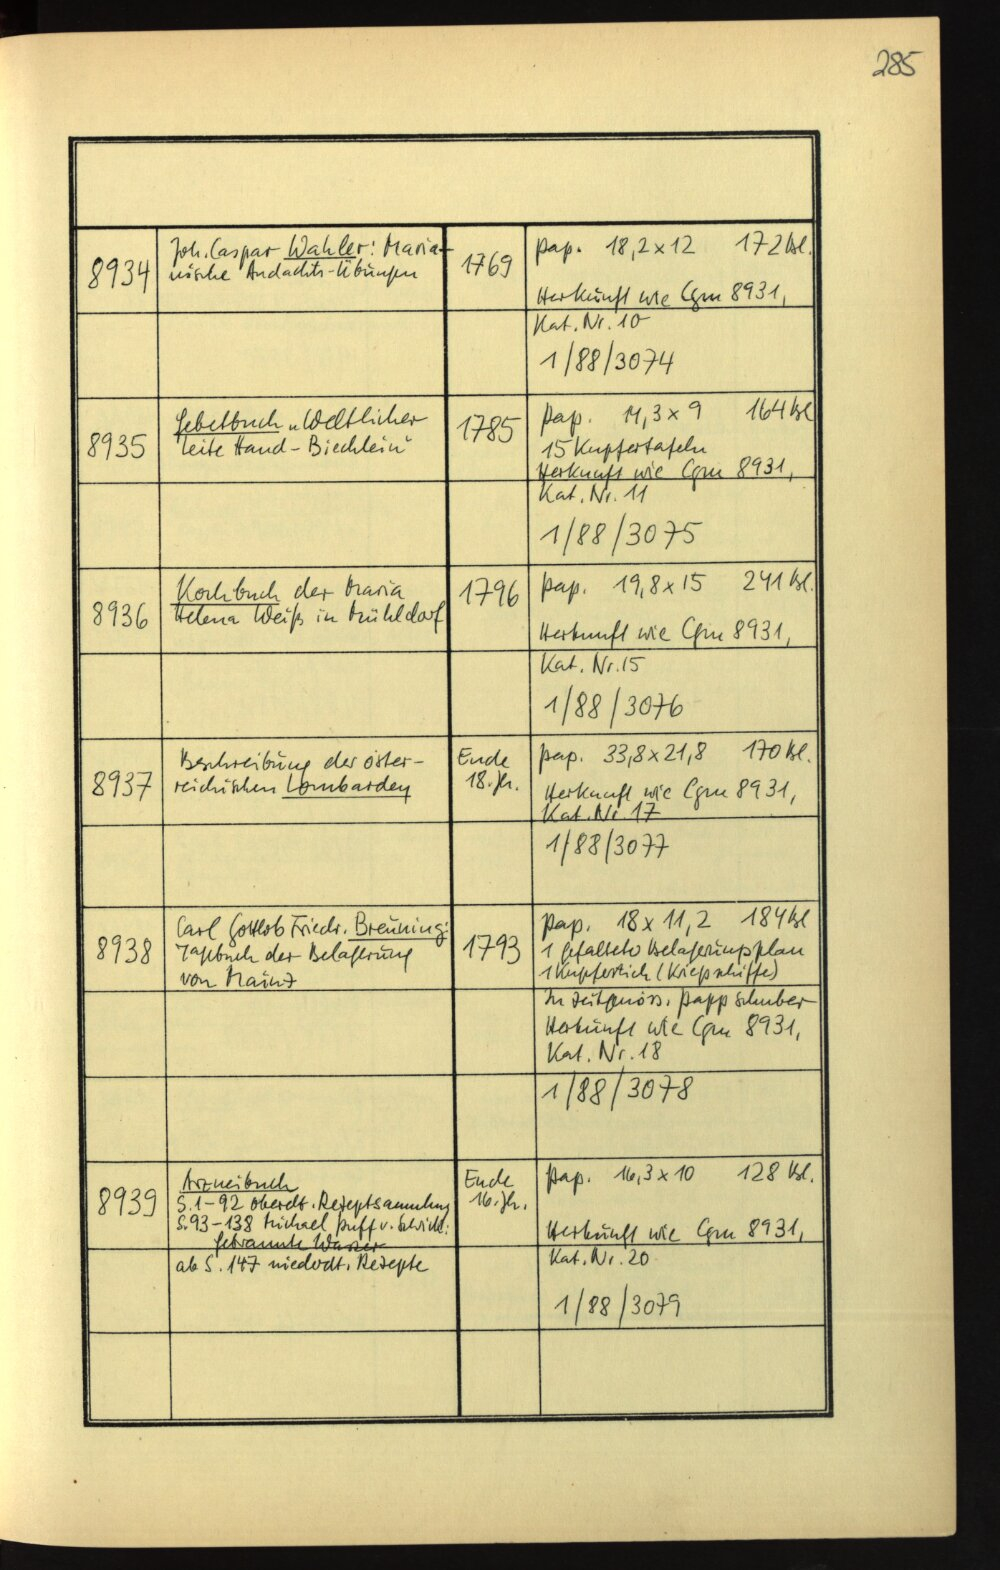 285
8934
Joh. Caspar Wahler: Maria-
nische Andachts-Übungen
1769
Pap. 18,2 x 12 172 Bl.
Herkunft wie Cgm 8931,
Kat. Nr. 10
1/88/3074
8935
Gebetbuch „Weltlicher
Leite Hand-Biechlein"
1785
Pap. 14,3 x 9 164 Bl
15 Kupfertafeln
Herkunft wie Cgm 8931,
Kat. Nr. 11
1/88/3075
8936
Kochbuch der Maria
Helena Weiß in Mühldorf
1796
Pap. 19,8 x 15 241 Bl.
Herkunft wie Cgm 8931,
Kat. Nr. 15
1/88/3076
8937
Beschreibung der öster-
reichischen Lombardey
Ende
18. Jh.
Pap. 33,8 x 21,8 170 Bl.
Herkunft wie Cgm 8931,
Kat. Nr. 17
1/88/3077
8938
Carl Gottlob Friedr. Breuning:
Tagebuch der Belagerung
von Mainz
1793
Pap. 18 x 11,2 184 Bl
1 gefalteter Belagerungsplan
1 Kupferstich (Kriegsschiffe)
In zeitgenöss. Pappschuber
Herkunft wie Cgm 8931,
Kat. Nr. 18
1/88/3078
8939
Arzneibuch
S. 1-92 oberdt. Rezeptsammlung
S. 93-138 Michael Puff v. Schrick:
Gebrannte Wasser
ab S. 147 niederdt. Rezepte
Ende
16. Jh.
Pap. 16,3 x 10 128 Bl.
Herkunft wie Cgm 8931,
Kat. Nr. 20
1/88/3079